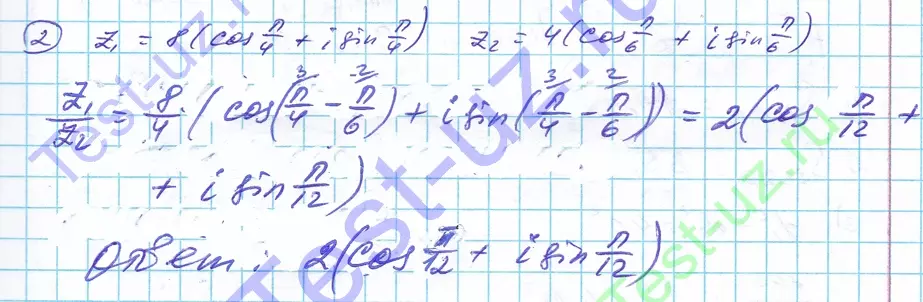 2) z₁ = 8(cos π/4 + i sin π/4)   z₂ = 4(cos π/6 + i sin π/6)
z₁/z₂ = 8/4 (cos(³π/4 − ²π/6) + i sin(³π/4 − ²π/6)) = 2(cos π/12 +
+ i sin π/12)
Ответ: 2(cos π/12 + i sin π/12)
Test-uz.ru
Test-uz.ru
Test-uz.ru